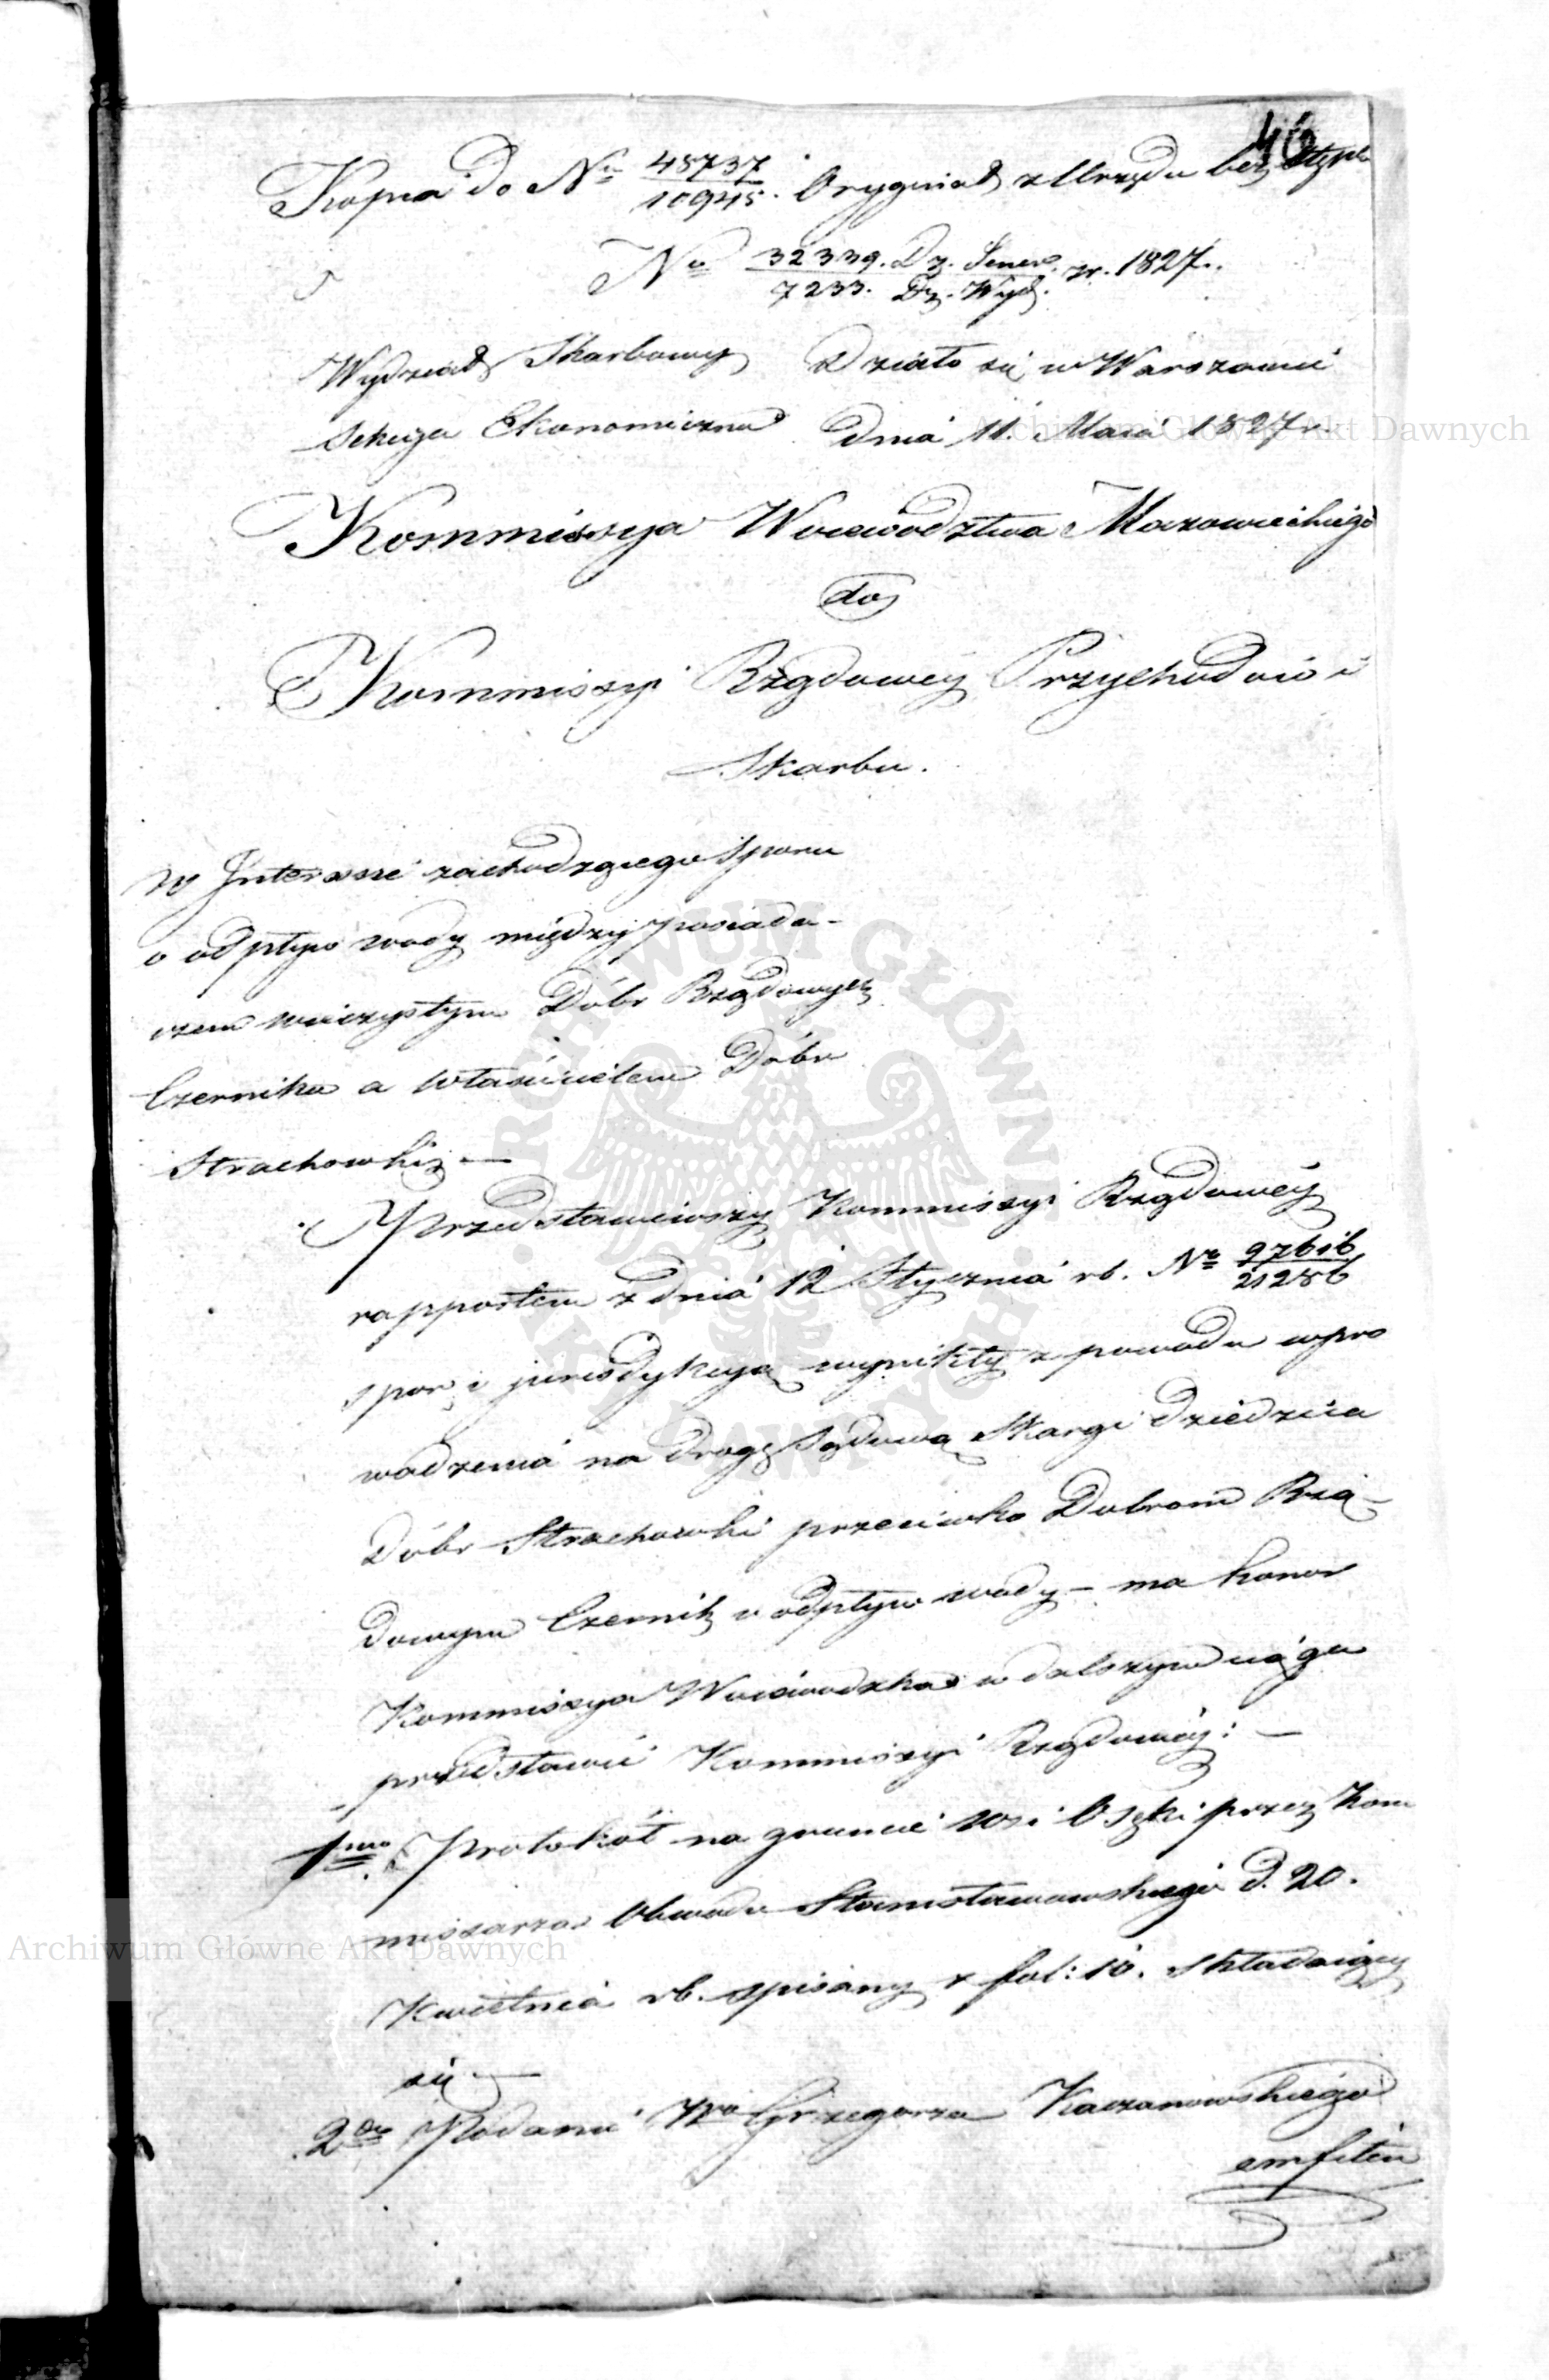 46
Kopia do Nru 45737/10945. Oryginał z Urzędu bez stępla
Nro 32339. Dz. Gener./7233. Dz. Wyd. r. 1827.
Wydział Skarbowy Działo się w Warszawie
Sekcya Ekonomiczna dnia 11. Maia 1827 r.
Kommissya Woiewództwa Mazowieckiego
do
Kommissyi Rządowey Przychodów i
Skarbu.
W Interessie zachodzącego sporu
o odpływ wody między posiada-
czem wieczystym Dóbr Rządowych
Czernika a właścicielem Dóbr
Strachowki.—
Przedstawiwszy Kommissyi Rządowey
rapportem z dnia 12 Stycznia rb. Nro 97616/21286
spor o jurisdykcyą wynikły z powodu wpro
wadzenia na drogę Sądową Skargi Dziedzica
Dóbr Strachowki przeciwko Dobrom Rzą-
dowym Czernik o odpływ wody – ma honor
Kommissya Woiewodzka w dalszym ciągu
przedstawić Kommissyi Rządowey: —
1mo Protokół na gruncie wsi Osęki przez Kom
missarza Obwodu Stanisławowskiego d. 20.
Kwietnia rb. spisany z fol: 10. składaiący
się —
2do Podanie Wgo Grzegorza Kaczanowskiego
emfiteu
Archiwum Główne Akt Dawnych
Archiwum Główne Akt Dawnych
ARCHIWUM GŁÓWNE AKT DAWNYCH